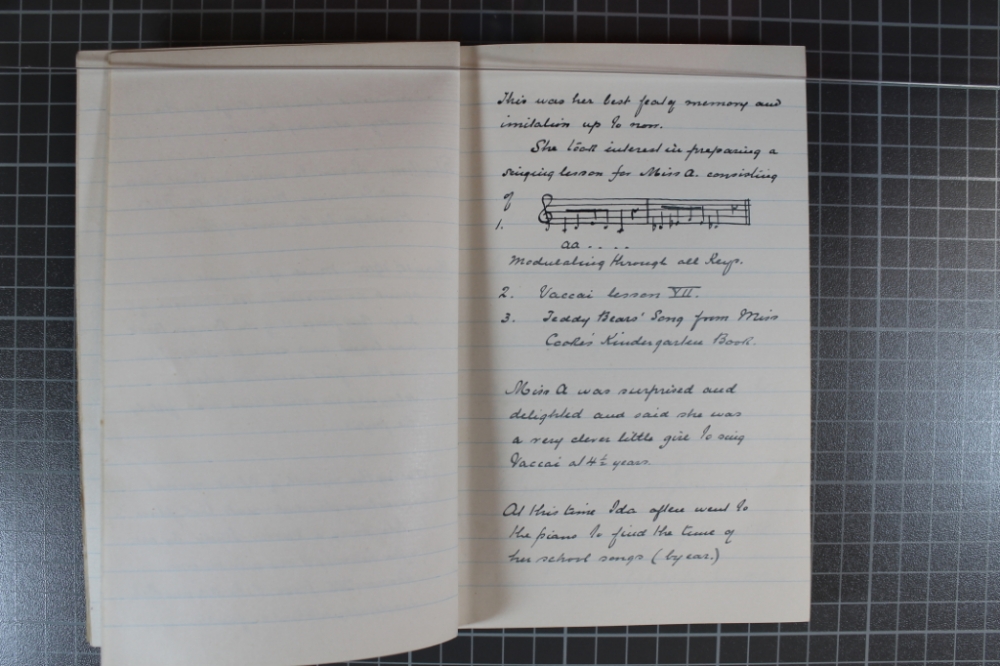 This was her best feat of memory and
imitation up to now.
She took interest in preparing a
singing lesson for Miss A. consisting
of
1.
aa . . . .
Modulating through all Keys.
2. Vaccai lesson VII.
3. Teddy Bears' Song from Miss
Cooke's Kindergarten Book.
Miss A was surprised and
delighted and said she was
a very clever little girl to sing
Vaccai at 4½ years.
At this time Ida often went to
the piano to find the tune of
her school songs (by ear.)